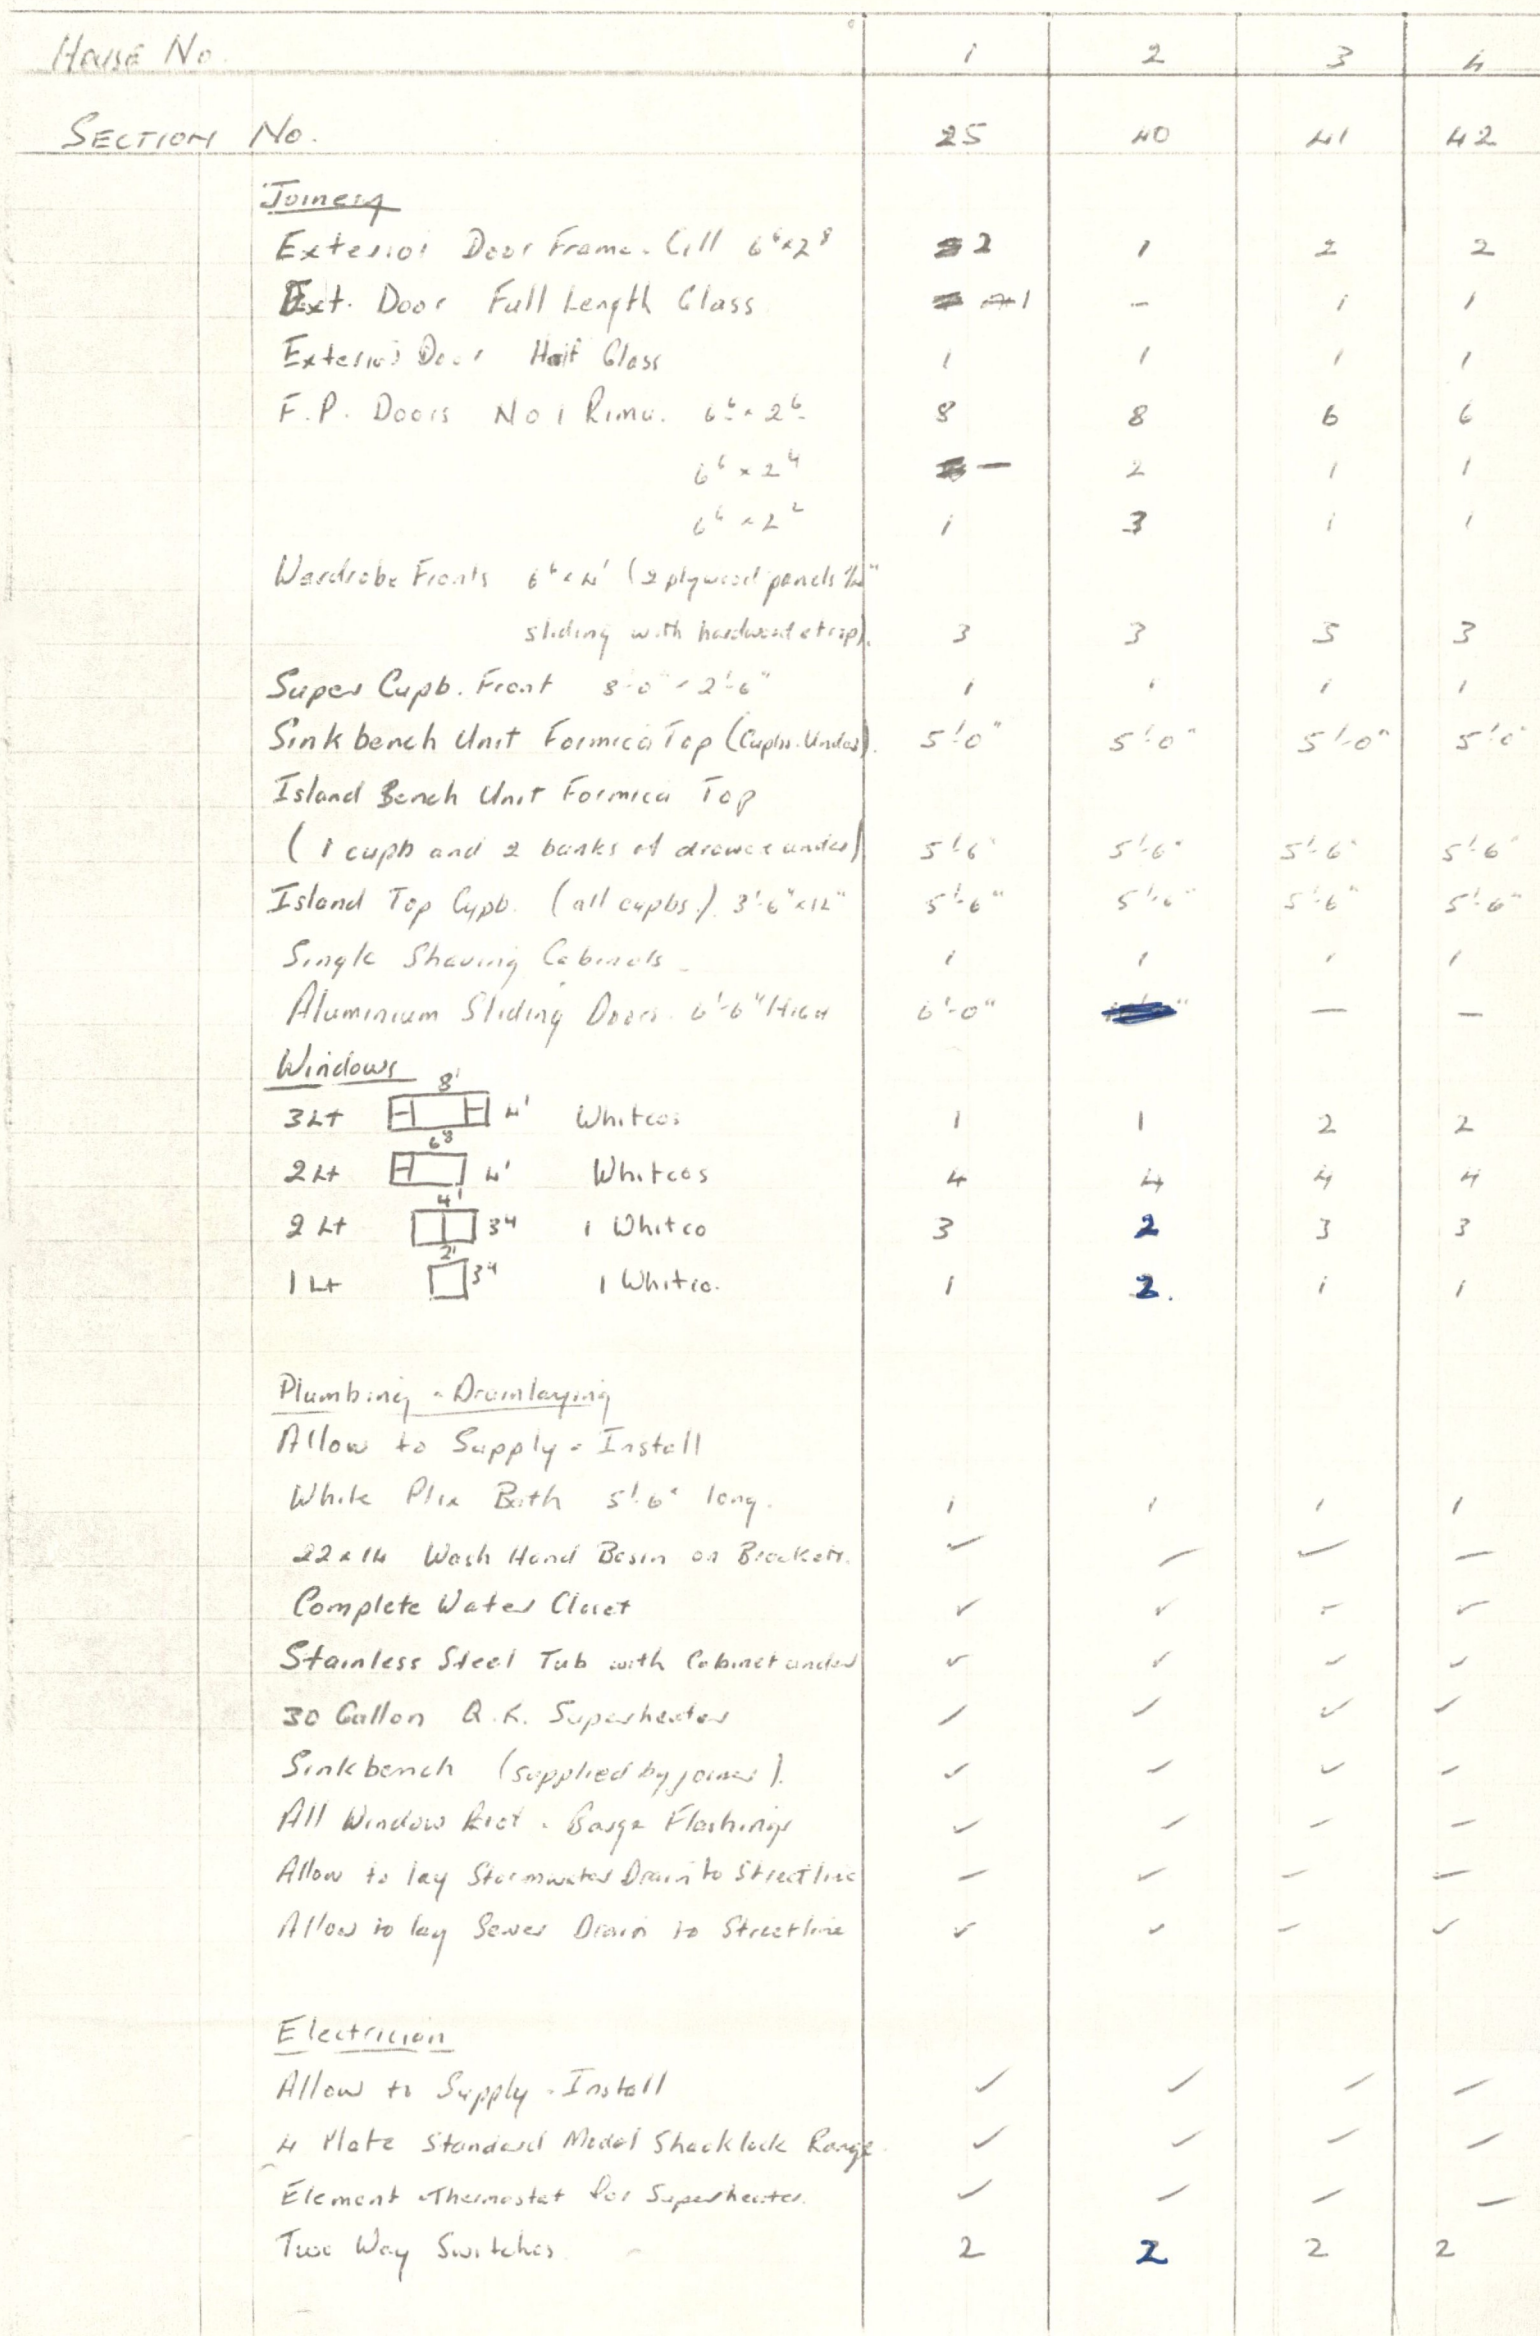 House No. 1 2 3 4
SECTION No. 25 40 41 42
Joinery
Exterior Door Frame. Cill 6⁶x2⁸ 2 1 2 2
Ext. Door Full Length Glass 1 - 1 1
Exterior Door Half Glass 1 1 1 1
F.P. Doors No 1 Rimu. 6⁶ x 2⁶ 8 8 6 6
6⁶ x 2⁴ — 2 1 1
6⁶ x 2² 1 3 1 1
Wardrobe Fronts 6⁶ x 4' (2 plywood panels
sliding with hardwood strip). 3 3 3 3
Super Cupb. Front 8'-0" x 2'-6" 1 1 1 1
Sinkbench Unit Formica Top (Cupbs. Under). 5'-0" 5'-0" 5'-0" 5'-0"
Island Bench Unit Formica Top
(1 cupb and 2 banks of drawers under) 5'-6" 5'-6" 5'-6" 5'-6"
Island Top Cupb. (all cupbs.). 3'-6" x 12" 5'-6" 5'-6" 5'-6" 5'-6"
Single Shaving Cabinets 1 1 1 1
Aluminium Sliding Doors. 6'-6" HIGH 6'-0" — —
Windows
8'
3 Lt 4' Whitcos 1 1 2 2
6⁸
2 Lt 4' Whitcos 4 4 4 4
4'
2 Lt 3⁴ 1 Whitco 3 2 3 3
2'
1 Lt 3⁴ 1 Whitco. 1 2. 1 1
Plumbing - Drainlaying
Allow to Supply - Install
White Plix Bath 5'-6" long. 1 1 1 1
22 x 14 Wash Hand Basin on Brackets. ✓ ✓ ✓ ✓
Complete Water Closet ✓ ✓ ✓ ✓
Stainless Steel Tub with Cabinet under ✓ ✓ ✓ ✓
30 Gallon Q.K. Superheater ✓ ✓ ✓ ✓
Sinkbench (supplied by joiner). ✓ ✓ ✓ ✓
All Window - Barge Flashings ✓ ✓ ✓ ✓
Allow to lay Stormwater Drain to Streetline ✓ ✓ ✓ ✓
Allow to lay Sewer Drain to Streetline ✓ ✓ ✓ ✓
Electrician
Allow to Supply - Install ✓ ✓ ✓ ✓
4 Plate Standard Model Shacklock Range. ✓ ✓ ✓ ✓
Element - Thermostat for Superheater. ✓ ✓ ✓ ✓
Two Way Switches 2 2 2 2